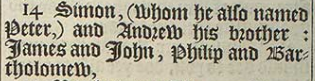 14 Simon, (whom he also named
Peter,) and Andrew his brother :
James and John, Philip and Bar-
tholomew,